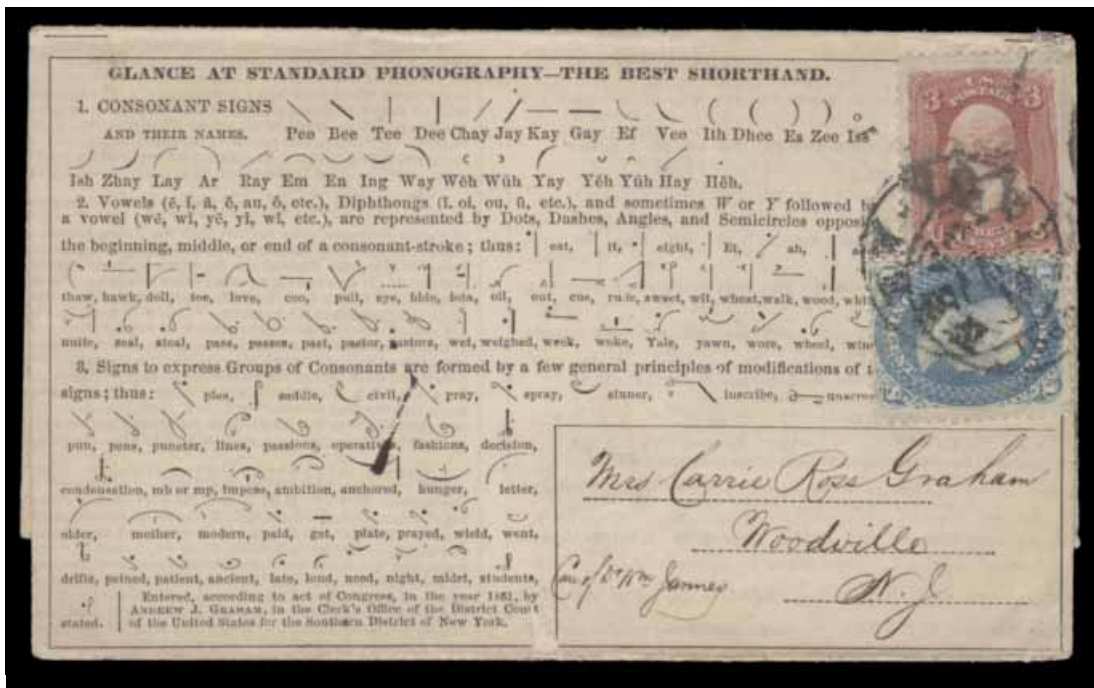 GLANCE AT STANDARD PHONOGRAPHY—THE BEST SHORTHAND.
1. CONSONANT SIGNS
AND THEIR NAMES. Pee Bee Tee Dee Chay Jay Kay Gay Ef Vee Ith Dhee Es Zee Iss
Ish Zhay Lay Ar Ray Em En Ing Way Wĕh Wŭh Yay Yĕh Yŭh Hay Hĕh.
2. Vowels (ē, ĭ, ā, ĕ, au, ŏ, etc.), Diphthongs (ī, oi, ou, ū, etc.), and sometimes W or Y followed by
a vowel (wē, wĭ, yē, yĭ, wī, etc.), are represented by Dots, Dashes, Angles, and Semicircles opposite
the beginning, middle, or end of a consonant-stroke; thus: eat, it, eight, Et, ah,
thaw, hawk, doll, foe, love, coo, pull, eye, Iota, oil, out, cue, sweet, wit, wheat, walk, wood,
unite, seal, steal, pass, passes, past, pastor, pastors, wet, weighed, week, woke, Yale, yawn, wore, wheel,
3. Signs to express Groups of Consonants are formed by a few general principles of modifications of
signs; thus: plea, saddle, civil, pray, spray, sinner, inscribe,
pun, pens, punster, lines, passions, operatives, fashions, decision,
condensation, mb or mp, impose, ambition, anchored, hunger, letter,
older, mother, modern, paid, got, plate, prayed, wield, went,
drifts, pained, patient, ancient, late, loud, need, night, midst, students,
stated. Entered, according to act of Congress, in the year 1861, by
ANDREW J. GRAHAM, in the Clerk's Office of the District Court
of the United States for the Southern District of New York.
3 U.S. POSTAGE 3
Mrs Carrie Ross Graham
Woodville
Care of Dr Wm Janney
N. J.